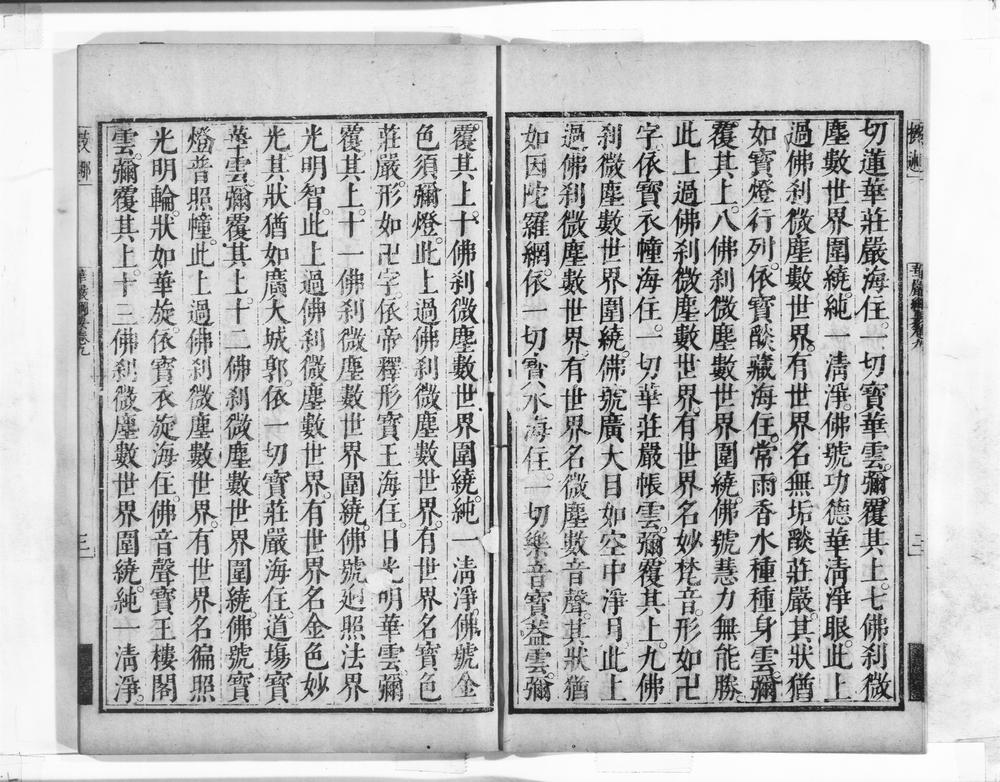 切蓮華莊嚴海住。一切寶華雲彌覆其上。七佛刹微
塵數世界圍繞。純一清淨。佛號功德華清淨眼。此上
過佛刹微塵數世界。有世界名無垢燄莊嚴。其狀猶
如寶燈行列。依寶燄藏海住。常雨香水種種身雲彌
覆其上。八佛刹微塵數世界圍繞。佛號慧力無能勝。
此上過佛刹微塵數世界。有世界名妙梵音。形如卍
字。依寶衣幢海住。一切華莊嚴帳雲。彌覆其上。九佛
刹微塵數世界圍繞。佛號廣大目如空中淨月。此上
過佛刹微塵數世界。有世界名微塵數音聲。其狀猶
如因陀羅網。依一切寶水海住。一切樂音寶蓋雲。彌
覆其上。十佛刹微塵數世界圍繞。純一清淨。佛號金
色須彌燈。此上過佛刹微塵數世界。有世界名寶色
莊嚴。形如卍字。依帝釋形寶王海住。日光明華雲彌
覆其上。十一佛刹微塵數世界圍繞。佛號迥照法界
光明智。此上過佛刹微塵數世界。有世界名金色妙
光。其狀猶如廣大城郭。依一切寶莊嚴海住。道場寶
華雲彌覆其上。十二佛刹微塵數世界圍繞。佛號寶
燈普照幢。此上過佛刹微塵數世界。有世界名徧照
光明輪。狀如華旋。依寶衣旋海住。佛音聲寶王樓閣
雲。彌覆其上。十三佛刹微塵數世界圍繞。純一清淨。
華嚴綱要卷九
三